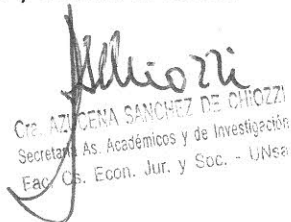 Chiozzi
Cra. AZUCENA SANCHEZ DE CHIOZZI
Secretaria As. Académicos y de Investigación
Fac. Cs. Econ. Jur. y Soc. - UNSa